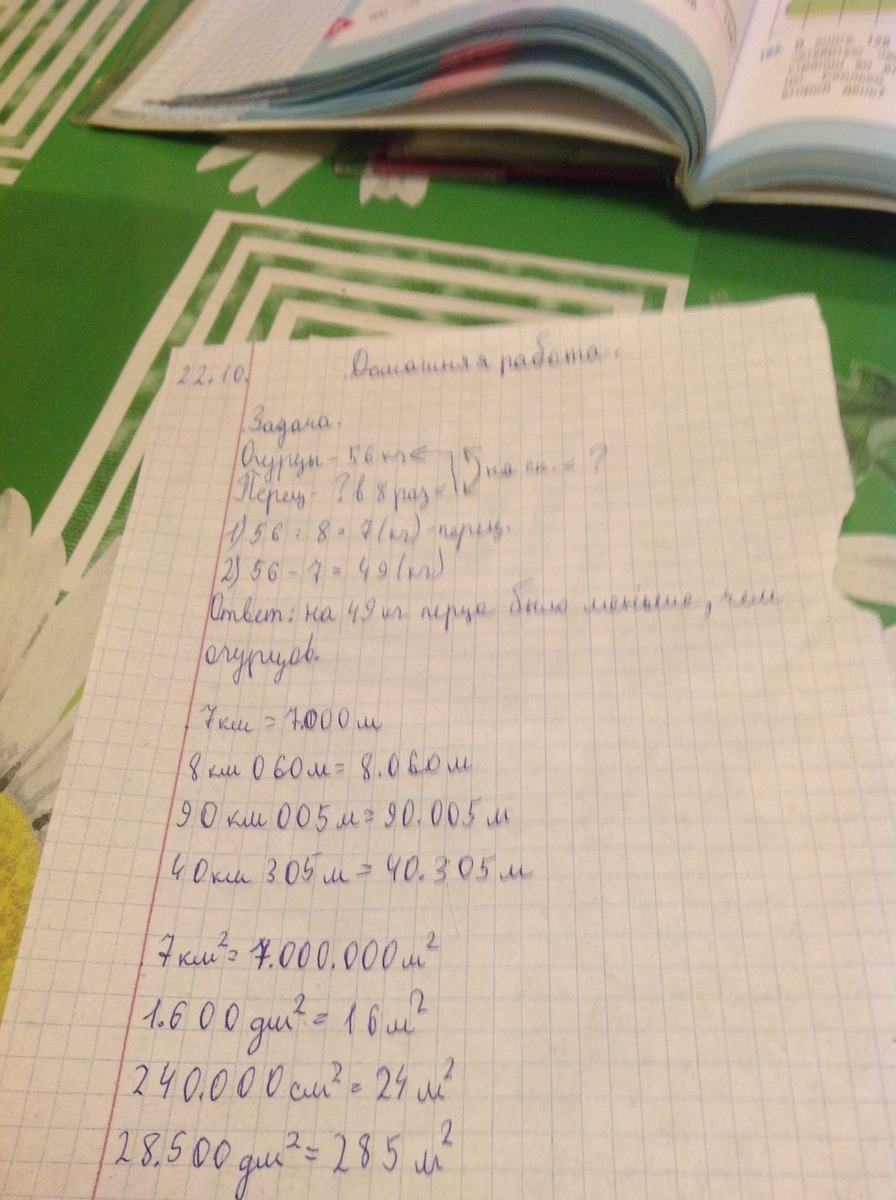 22.10. Домашняя работа.
Задача.
Огурцы - 56 кг
Перец - ? в 8 раз на ск. = ?
1) 56 : 8 = 7 (кг) - перец.
2) 56 - 7 = 49 (кг)
Ответ: на 49 кг перца было меньше, чем
огурцов.
7 км = 7.000 м
8 км 060 м = 8.060 м
90 км 005 м = 90.005 м
40 км 305 м = 40.305 м
7 км² = 7.000.000 м²
1.600 дм² = 16 м²
240.000 см² = 24 м²
28.500 дм² = 285 м²